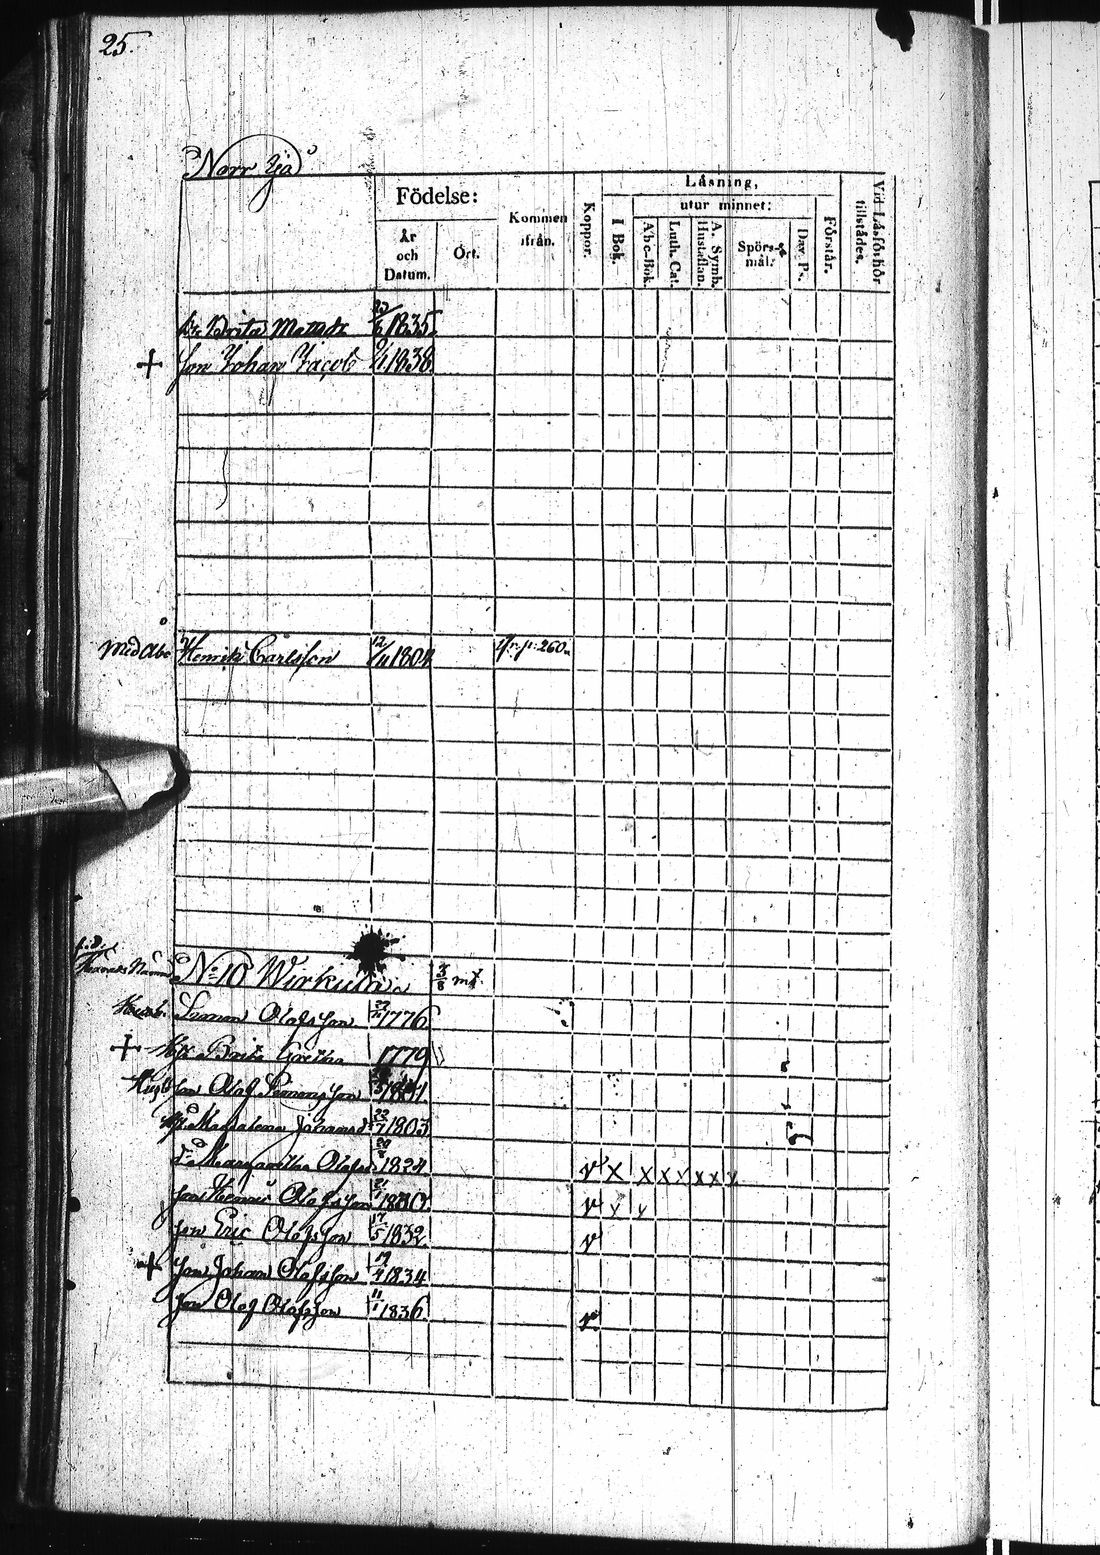 25.
Norr Yjä
Födelse:
År och Datum.
Ort.
Kommen ifrån.
Koppor.
Läsning,
I Bok.
utur minnet:
Abc-Bok.
Luth. Cat.
A. Symb. Hustaflan.
Spörsmål:
Dav. Ps.
Förstår.
Vid Läsförhör tillstädes.
Brita Matsdr 1835
+ Son Johan Jacob 1838
Med Åbo Henrik Carlsson 12/11 1804 fr. p. 260.
No 10 Wirkula 3/8 mt.
Husb. Simon Olofsson 1776
+ Hu Brita Gretha 1779
Husb Son Olof Simonsson 1801
Hu Magdalena Johansdr 1803
Dr Margaretha Olofsdr 1824 v x x x x x x x
Son Henric Olofsson v x x
Son Eric Olofsson 17/5 1832 v
+ Son Johan Olofsson 19/4 1834
Son Olof Olofsson 11/1 1836 v